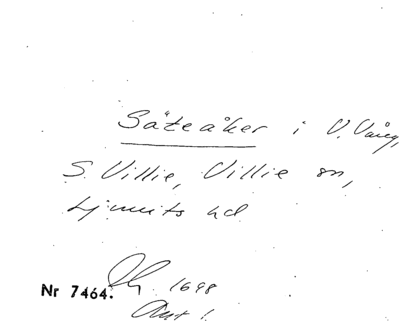 Säteåker i V. Vång,
S. Villie, Villie sn,
Ljunits hd
1698
Nr 7464.